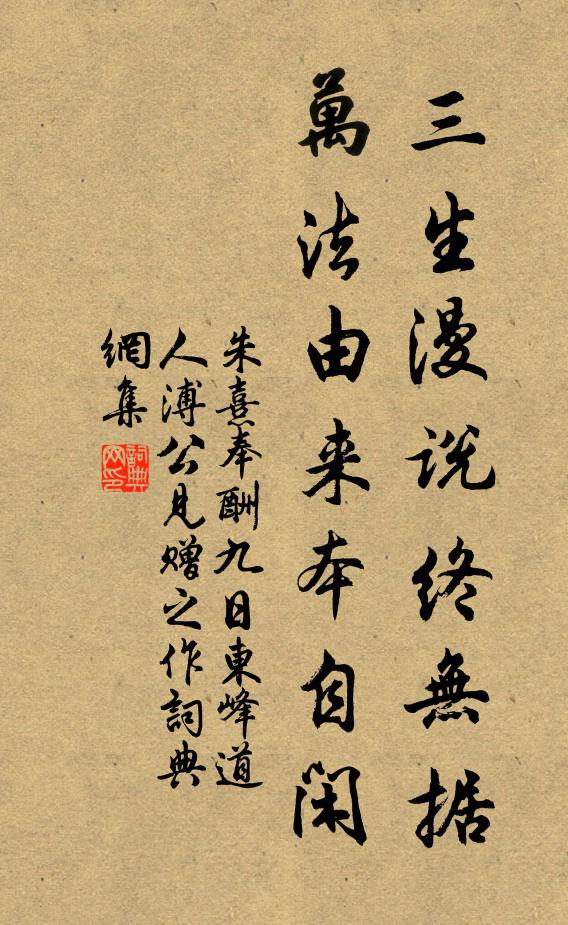 三生漫说终無据
萬法由来本自闲
朱熹奉酬九日東峰道
人溥公见赠之作詞典
網集
詞典
网印